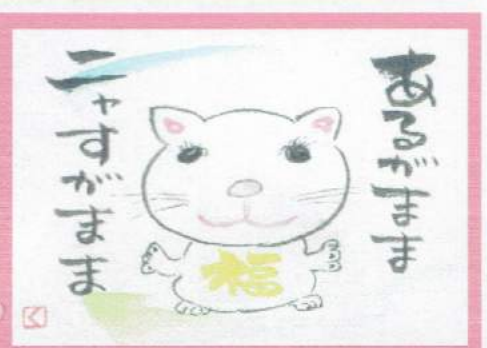 あるがまま
ニャすがまま
福
く